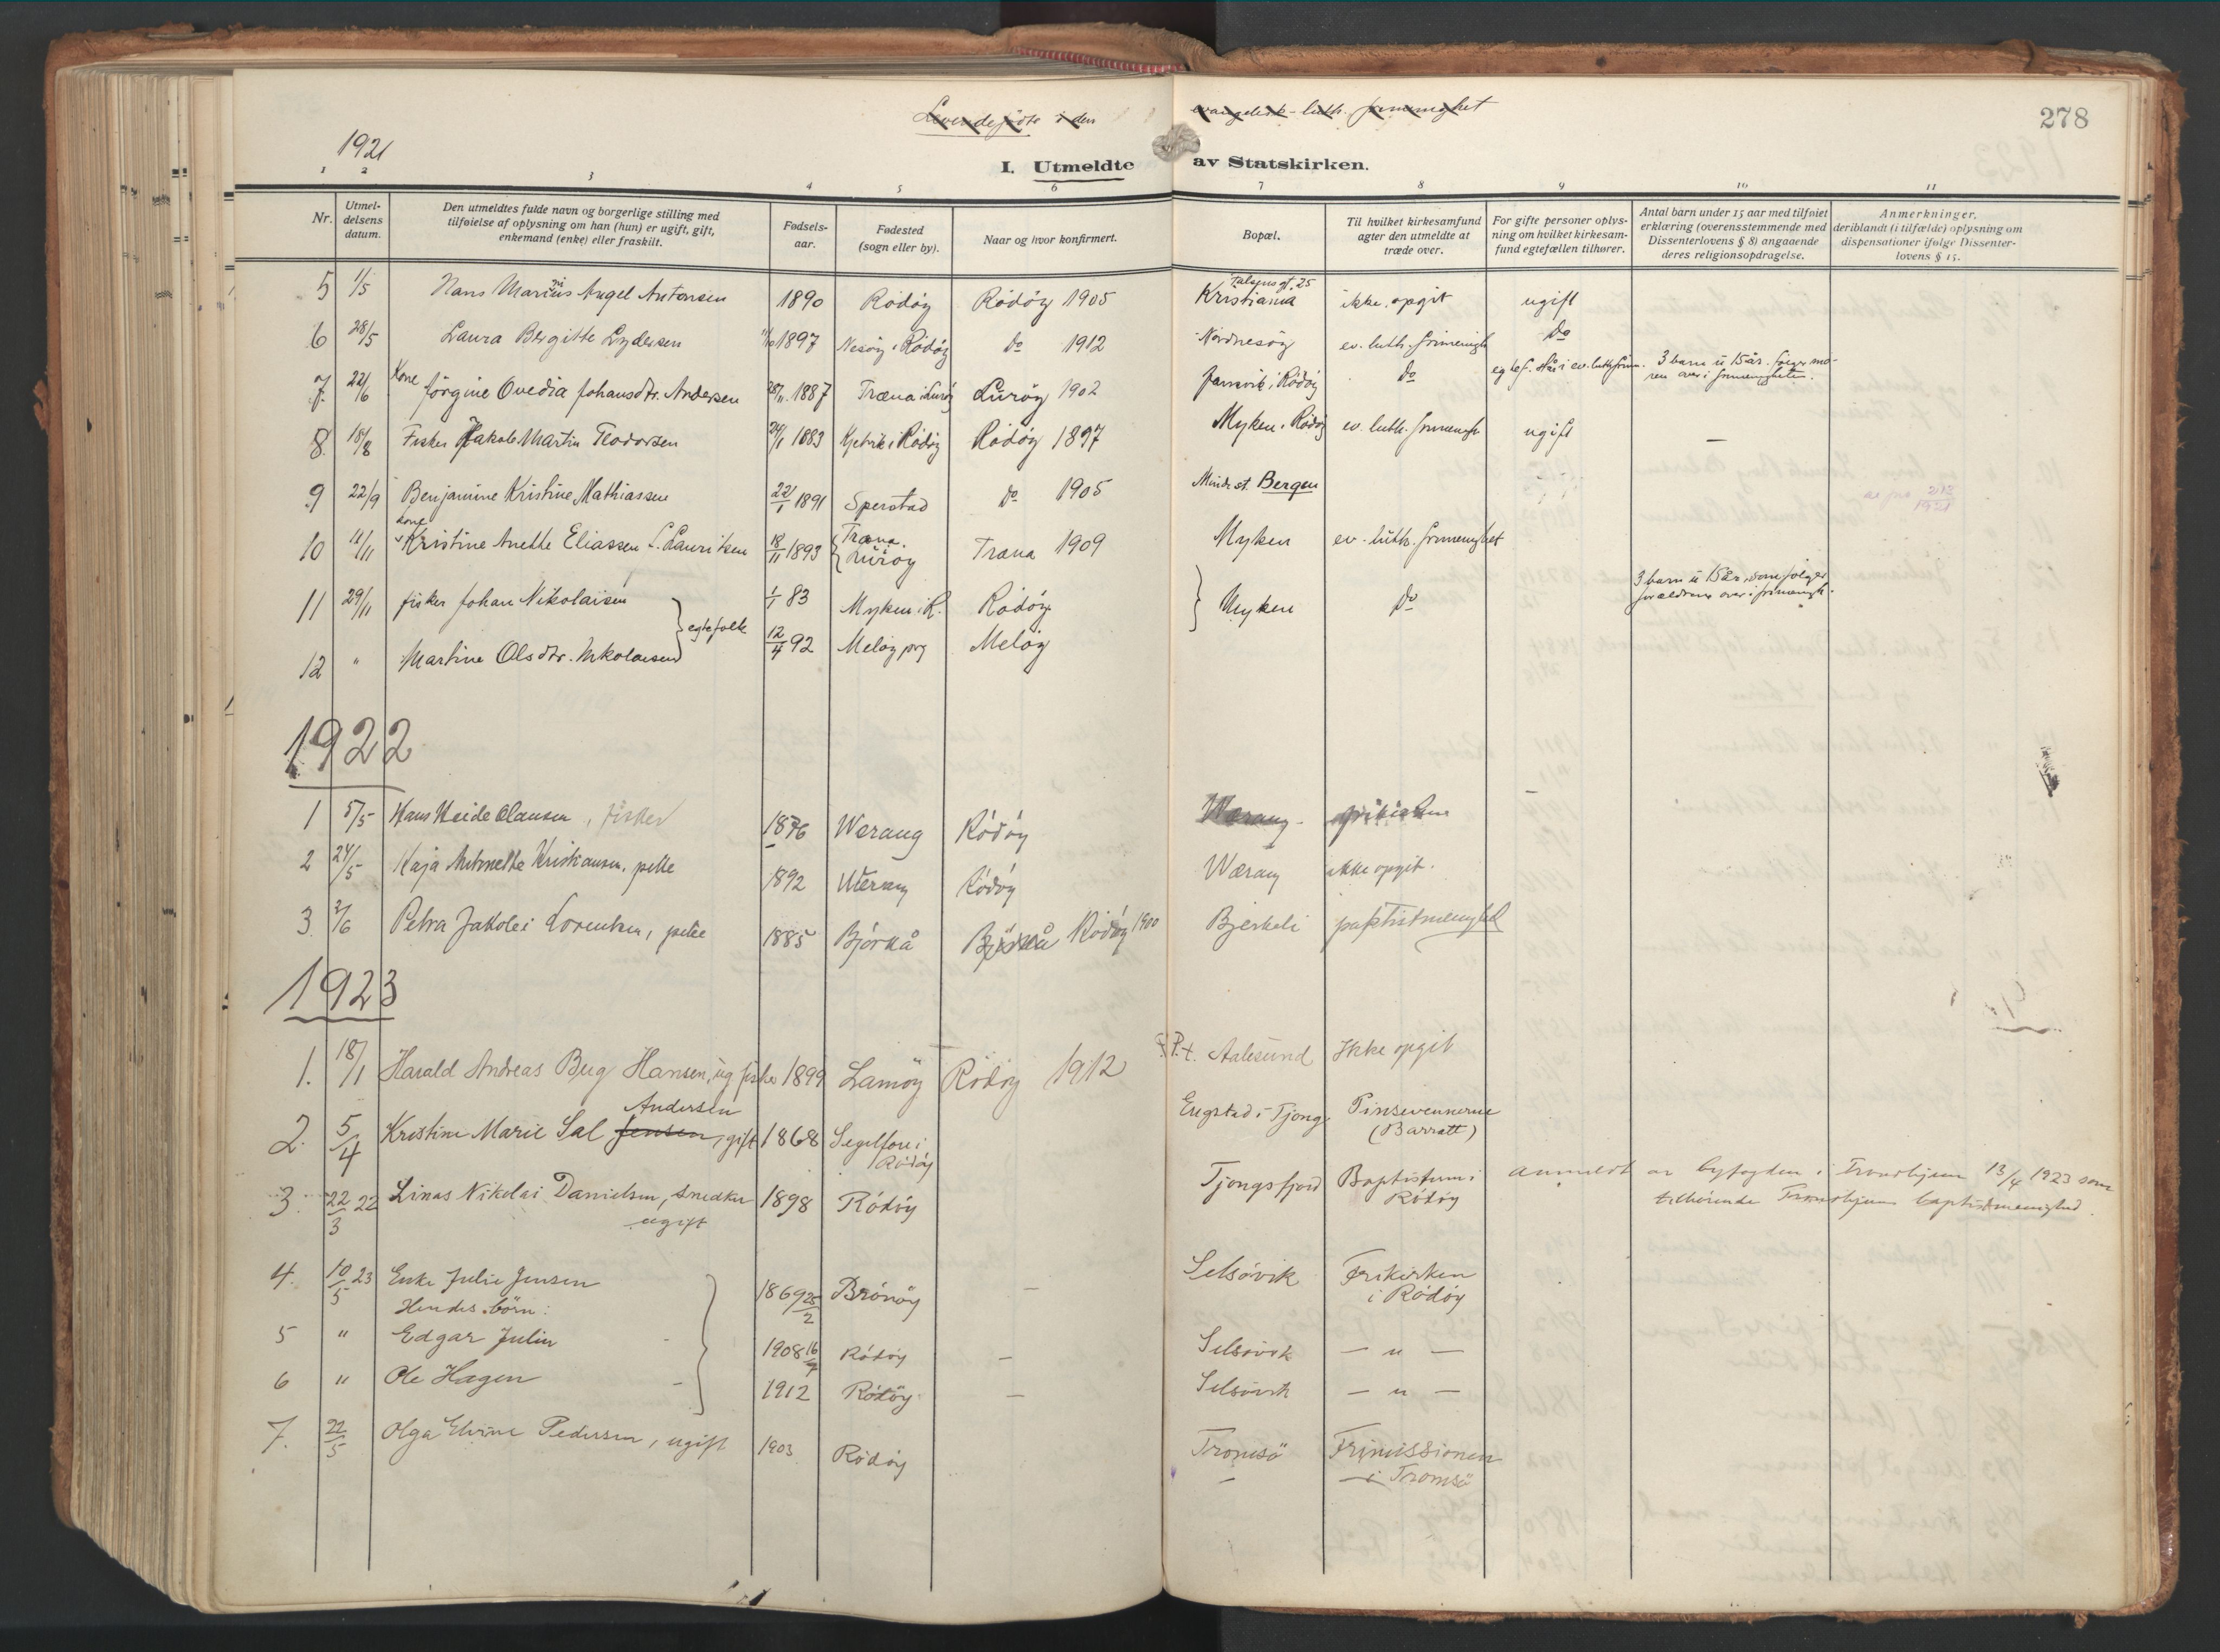 Levendefödte i den evangelisk-luth. frimenighet
278
1921
I. Utmeldte av Statskirken.
1 2 3 4 5 6 7 8 9 10 11
Nr.
Utmeldelsens datum.
Den utmeldtes fulde navn og borgerlige stilling med tilføielse af oplysning om han (hun) er ugift, gift, enkemand (enke) eller fraskilt.
Fødselsaar.
Fødested (sogn eller by).
Naar og hvor konfirmert.
Bopæl.
Til hvilket kirkesamfund agter den utmeldte at træde over.
For gifte personer oplysning om hvilket kirkesamfund egtefællen tilhører.
Antal barn under 15 aar med tilføiet erklæring (overensstemmende med Dissenterlovens § 8) angaaende deres religionsopdragelse.
Anmerkninger, deriblandt (i tilfælde) oplysning om dispensationer ifølge Dissenterlovens § 15.
5 1/5 Hans Marius Angel Antonsen 1890 Rödöy Rödöy 1905 25 Kristiania ikke opgit ugift
6 28/5 Laura Bergitte Lydersen 1897 Nesöy i Rödöy do 1912 Nordnesöy ev. luth. frimenigh do
7. 22/6 Kone Jörgine Ovedia Johansdtr. Andersen 1887 Træna i Luröy Luröy 1902 i Rödöy do egtef. står i ev. luth. frim. 3 barn u 15 år. følger moren over i frimenigheten.
8. 18/8 Fisker Jakob Martin Teodorsen 24/1 1883 i Rödöy Rödöy 1897 Myken i Rödöy ev. luth. frimenigh ugift –
9 22/9 Benjamine Kristine Mathiassen 22/1 1891 Sperstad do 1905 st. Bergen
10 11/11 kone Kristine Anette Eliassen f. Lauritsen 18/11 1893 Træna. Luröy Træna 1909 Myken ev. luth. frimenighet
11 29/11 fisker Johan Nikolaisen 1/1 83 Myken i R. Rödöy } Myken do 3 barn u 15 år, som følger forældrene over i frimenigh.
} egtefolk
12 " Martine Olsdtr. Nikolaisen 12/4 92 Melöy prg Melöy
1922
1 5/5 Hans Heide Clausen, fisker 1876 Værang Rödöy Værang - frikirken
2 24/5 Kaja Antonette Kristiansen, 1892 Værang Rödöy Værang ikke opgit.
3. 2/6 Petra Jakolei Lorentsen, 1885 Bjórkå Bjórkå Rödöy 1900 Bjerkeli baptistmenighed
1923
1. 18/1 Harald Andreas Berg Hansen, ug fisker 1899 Lamöy Rödöy 1912 P.t. Aalesund Ikke opgit
2. 5/4 Kristine Marie Sal Jensen Andersen, gift 1868 Segelfore i Rödöy Engstad i Tjong Pinsevennerne (Barratt)
3. 22/3 22 Linas Nikolai Danielsen, snedker ugift 1898 Rödöy Tjongsfjord Baptistum i Rödöy anmeldt av byfogden i Trondhjem 13/4 1923 som tilhørende Trondhjems baptistmenighed.
4. 10/5 23 Enke Julie Jensen 1869 25/2 Brönöy – Selsövik Frikirken i Rödöy
Hendes börn:
5 " Edgar Julin 1908 Rödöy – Selsövik – " –
6 " Ole Hagen 1912 Rödöy – Selsövik – " –
7. 22/5 Olga Elvine Pedersen, ugift 1903 Rödöy Tromsö Frimissionen – i Tromsö